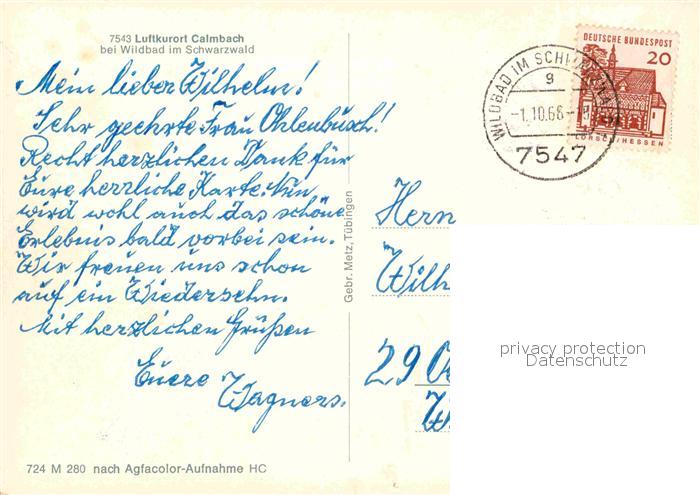 7543 Luftkurort Calmbach
bei Wildbad im Schwarzwald
Mein lieber Wilhelm!
Sehr geehrte Frau Ohlenbusch!
Recht herzlichen Dank für
Eure herzliche Karte. Nun
wird wohl auch das schöne
Erlebnis bald vorbei sein.
Wir freuen uns schon
auf ein Wiedersehn.
Mit herzlichen Grüßen
Euere
Wagners.
724 M 280 nach Agfacolor-Aufnahme HC
Gebr. Metz, Tübingen
DEUTSCHE BUNDESPOST
20
/HESSEN
WILDBAD IM
g
-1.10.66-
7547
Herrn
Wilh
29
privacy protection
Datenschutz